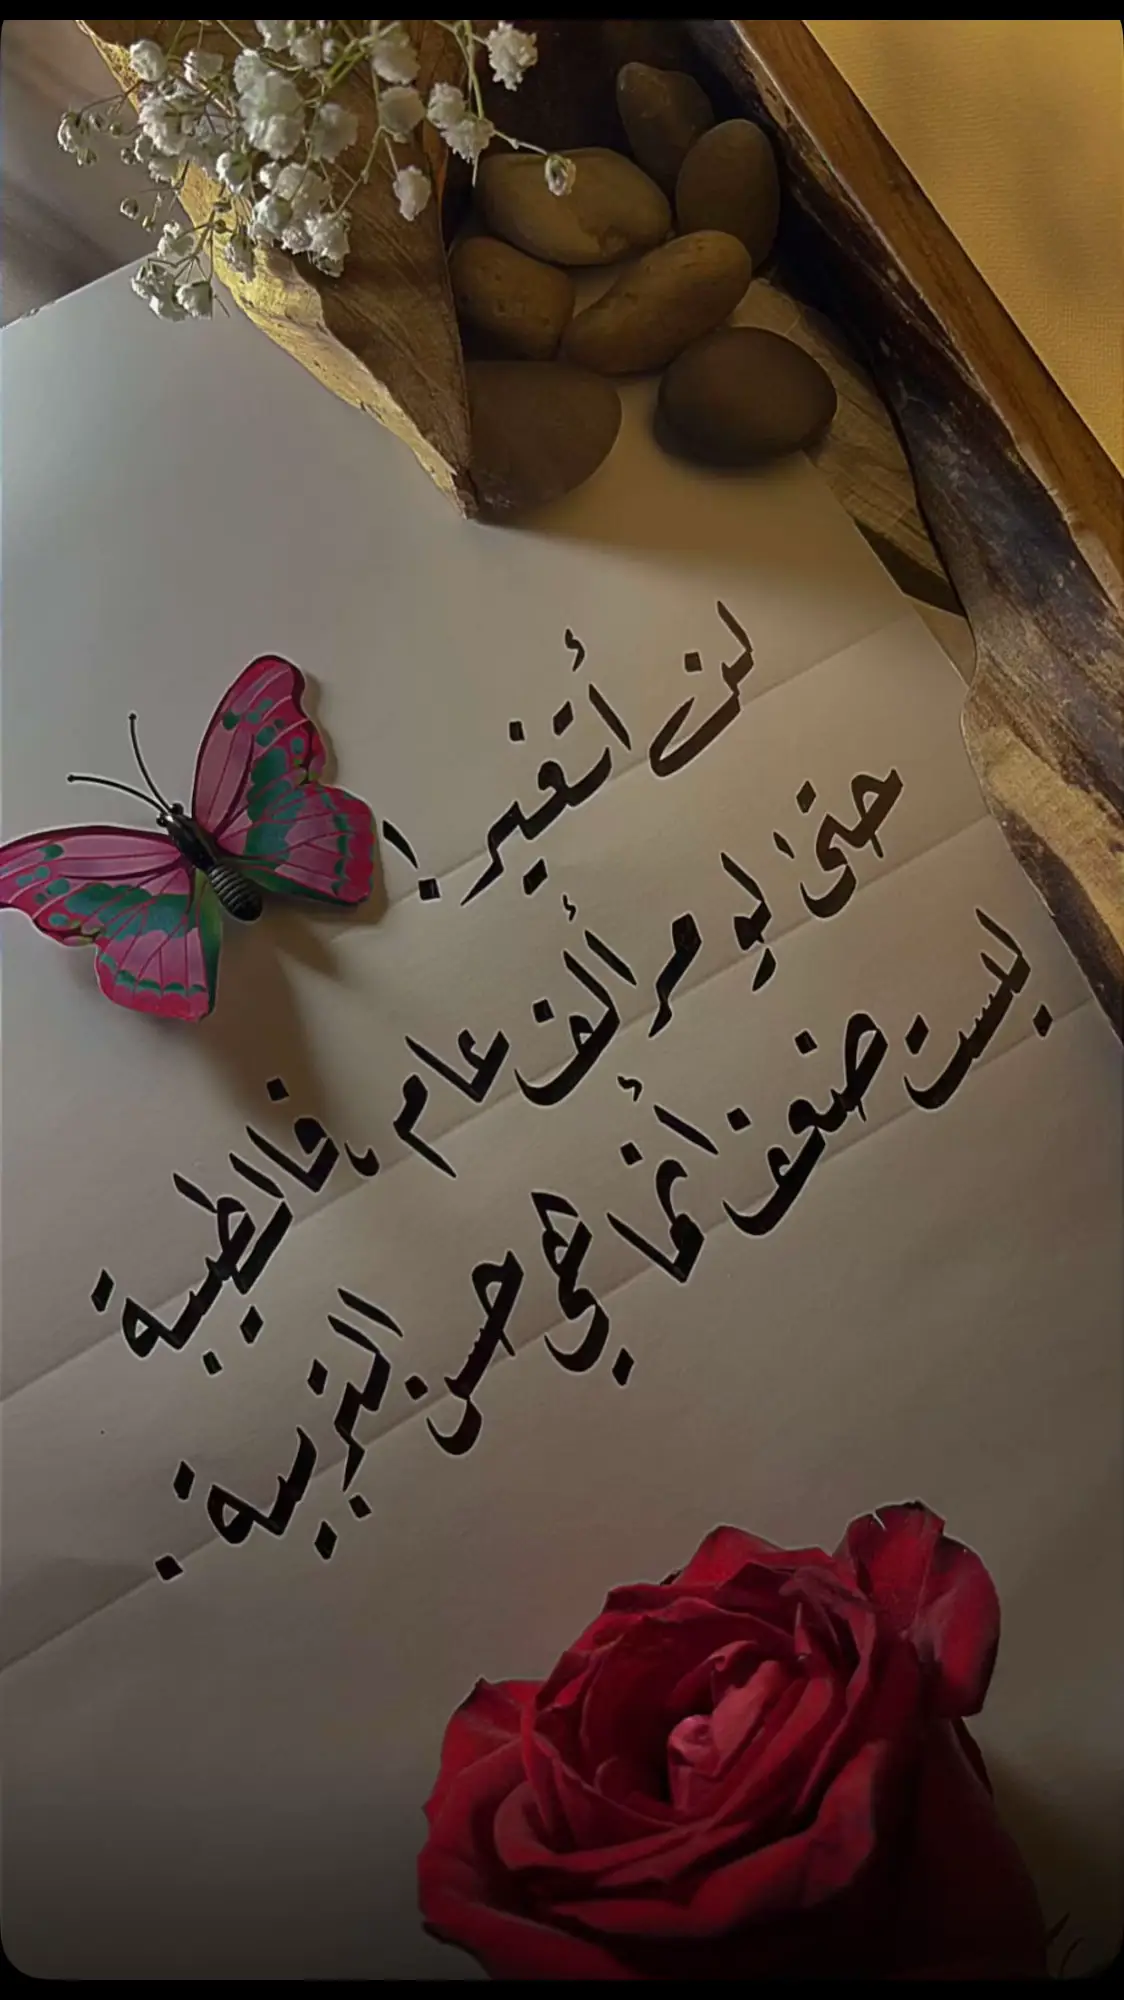 لن أتغير !
حتى لو مر ألف عام ، فالطيبة
ليست ضعف أنما هي حسن التربية .